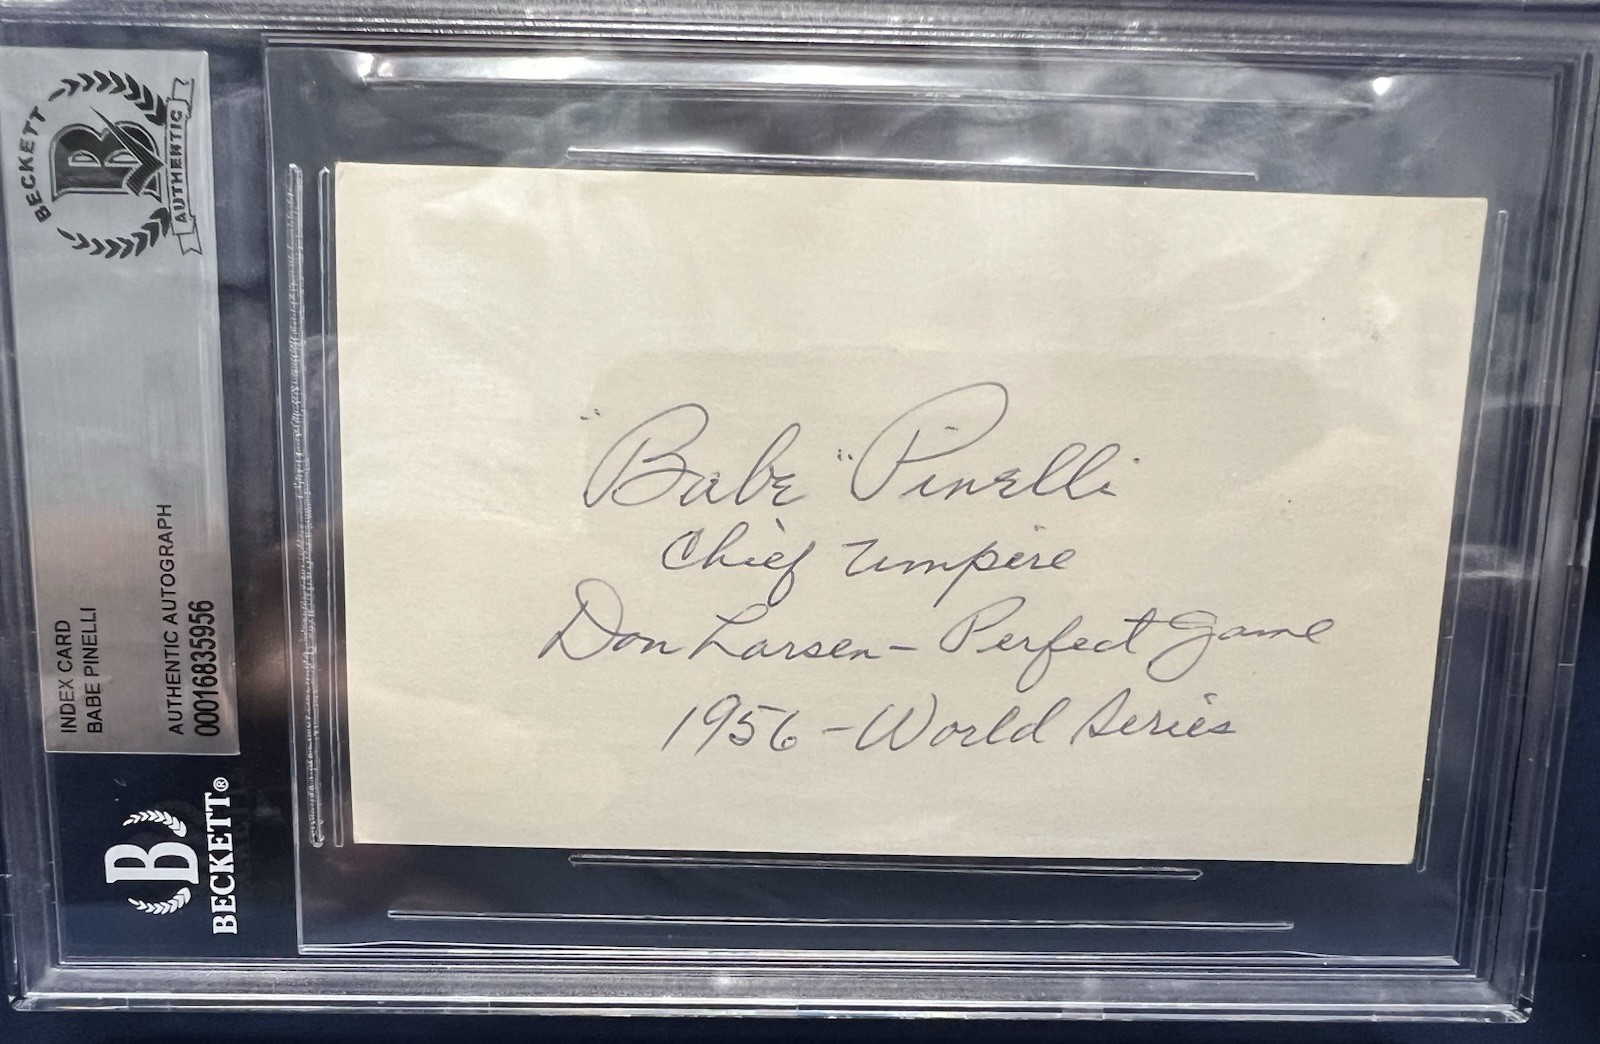 BECKETT
B
AUTHENTIC
INDEX CARD
BABE PINELLI
AUTHENTIC AUTOGRAPH
00016835956
B
BECKETT®
"Babe" Pinelli
Chief Umpire
Don Larsen - Perfect Game
1956 - World Series